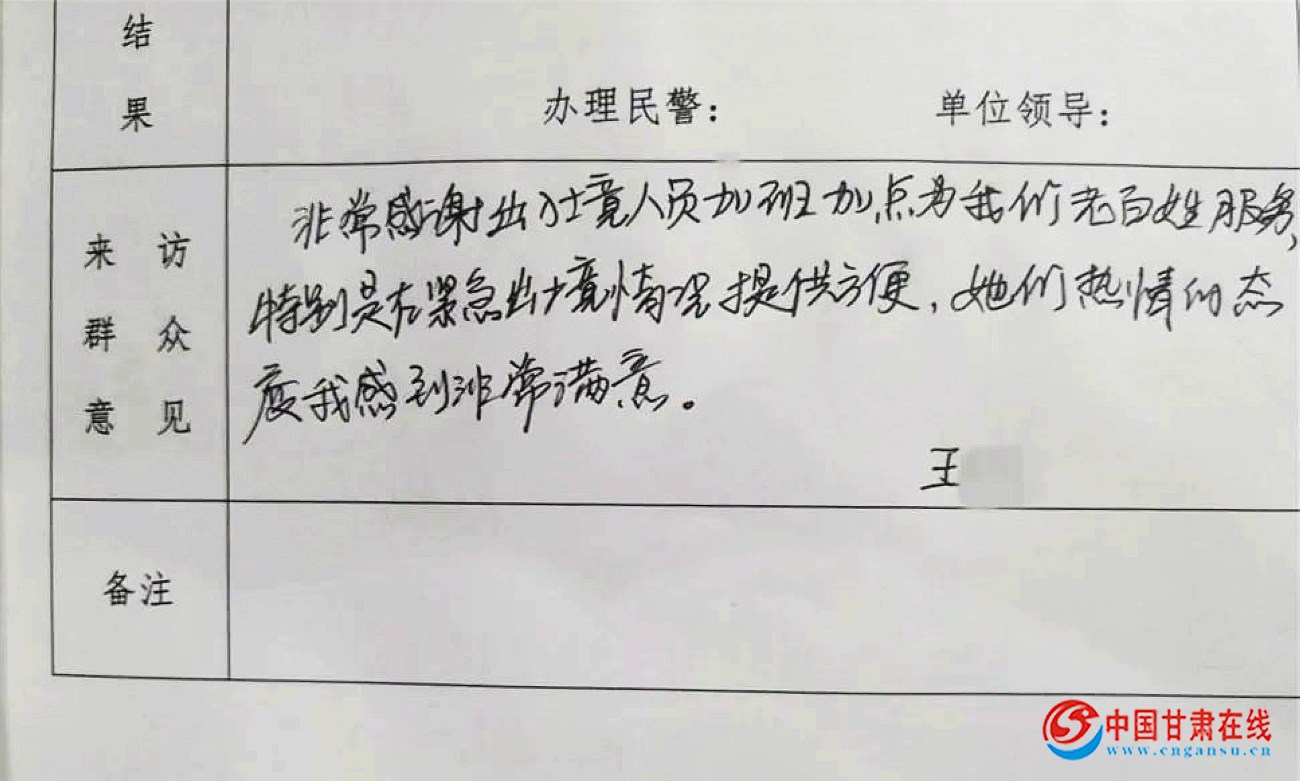 结
果
办理民警： 单位领导：
来访
群众
意见
非常感谢出入境人员加班加点为我们老百姓服务，
特别是在紧急出境情况提供方便，她们热情的态
度我感到非常满意。
王
备注
中国甘肃在线
www.cngansu.cn